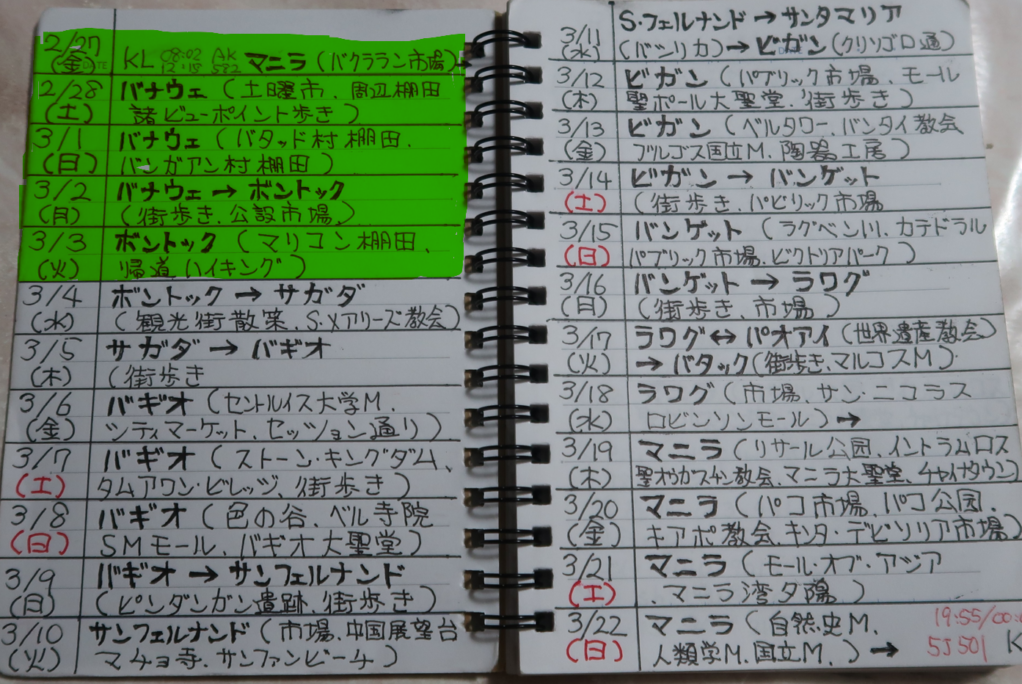 2/27
(金) KL 08:02 12:15 AK 582 マニラ (バクララン市場)→
2/28 バナウェ (土曜市、周辺棚田
(土) 諸ビューポイント歩き)
3/1 バナウェ (バタッド村棚田、
(日) バンガアン村棚田)
3/2 バナウェ → ボントック
(月) (街歩き、公設市場、)
3/3 ボントック (マリコン棚田、
(火) 帰道ハイキング)
3/4 ボントック → サガダ
(水) (観光街散策、S.メアリーズ教会)
3/5 サガダ → バギオ
(木) (街歩き
3/6 バギオ (セントルイス大学M.
(金) シティマーケット、セッション通り)
3/7 バギオ (ストーン・キングダム、
(土) タムアワン・ビレッジ、街歩き)
3/8 バギオ (色の谷、ベル寺院
(日) SMモール、バギオ大聖堂)
3/9 バギオ → サンフェルナンド
(月) (ピンダンガン遺跡、街歩き)
3/10 サンフェルナンド (市場、中国展望台
(火) マチョ寺、サンファンビーチ)
S・フェルナンド → サンタマリア
3/11
(水) (バシリカ) → ビガン (クリソゴロ通)
3/12 ビガン (パブリック市場、モール
(木) 聖ポール大聖堂、街歩き)
3/13 ビガン (ベルタワー、バンタイ教会
(金) ブルゴス国立M、陶器工房)
3/14 ビガン → バンゲット
(土) (街歩き、パビリック市場
3/15 バンゲット (ラグベン川、カテドラル
(日) パブリック市場、ビクトリアパーク)
3/16 バンゲット → ラワグ
(月) (街歩き、市場)
3/17 ラワグ ↔ パオアイ (世界遺産教会)
(火) → バタック (街歩き、マルコスM)
3/18 ラワグ (市場、サン・ニコラス
(水) ロビンソンモール) →
3/19 マニラ (リサール公園、イントラムロス
(木) 聖オウガスチン教会、マニラ大聖堂、チャイナタウン)
3/20 マニラ (パコ市場、パコ公園、
(金) キアポ教会、キンタ・デビソリア市場)
3/21 マニラ (モール・オブ・アジア
(土) 、マニラ湾夕陽)
3/22 マニラ (自然史M. 19:55/00:
(日) 人類学M、国立M、) → 5J501 K